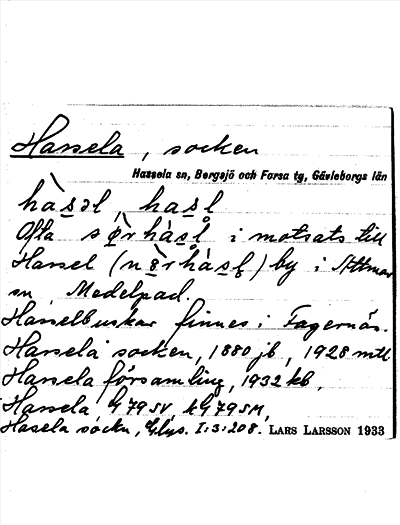 Hassela, socken
Hassela sn, Bergsjö och Forsa tg, Gävleborgs län
hàsəl, hasl
Ofta sø̀rhàsl̥ i motsats till
Hassel (nø̀rhàsl̥) by i Attmar
sn, Medelpad.
Hasselbuskar finnes i Fagernäs.
Hassela socken, 1880 jb, 1928 mtl
Hassela församling, 1932 kb,
Hassela, G79SV, kG79SM,
Hasela sockn, Glys. I:3:208. LARS LARSSON 1933